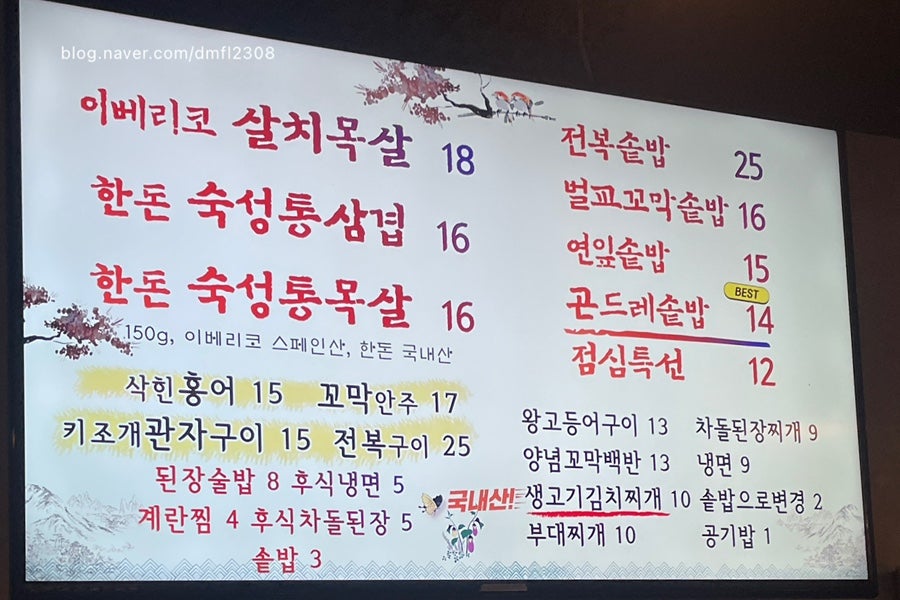 blog.naver.com/dmfl2308
이베리코 살치목살 18
한돈 숙성통삼겹 16
한돈 숙성통목살 16
150g, 이베리코 스페인산, 한돈 국내산
삭힌홍어 15 꼬막안주 17
키조개관자구이 15 전복구이 25
된장술밥 8 후식냉면 5
계란찜 4 후식차돌된장 5
솥밥 3
전복솥밥 25
벌교꼬막솥밥 16
연잎솥밥 15
BEST
곤드레솥밥 14
점심특선 12
왕고등어구이 13 차돌된장찌개 9
양념꼬막백반 13 냉면 9
국내산! 생고기김치찌개 10 솥밥으로변경 2
부대찌개 10 공기밥 1